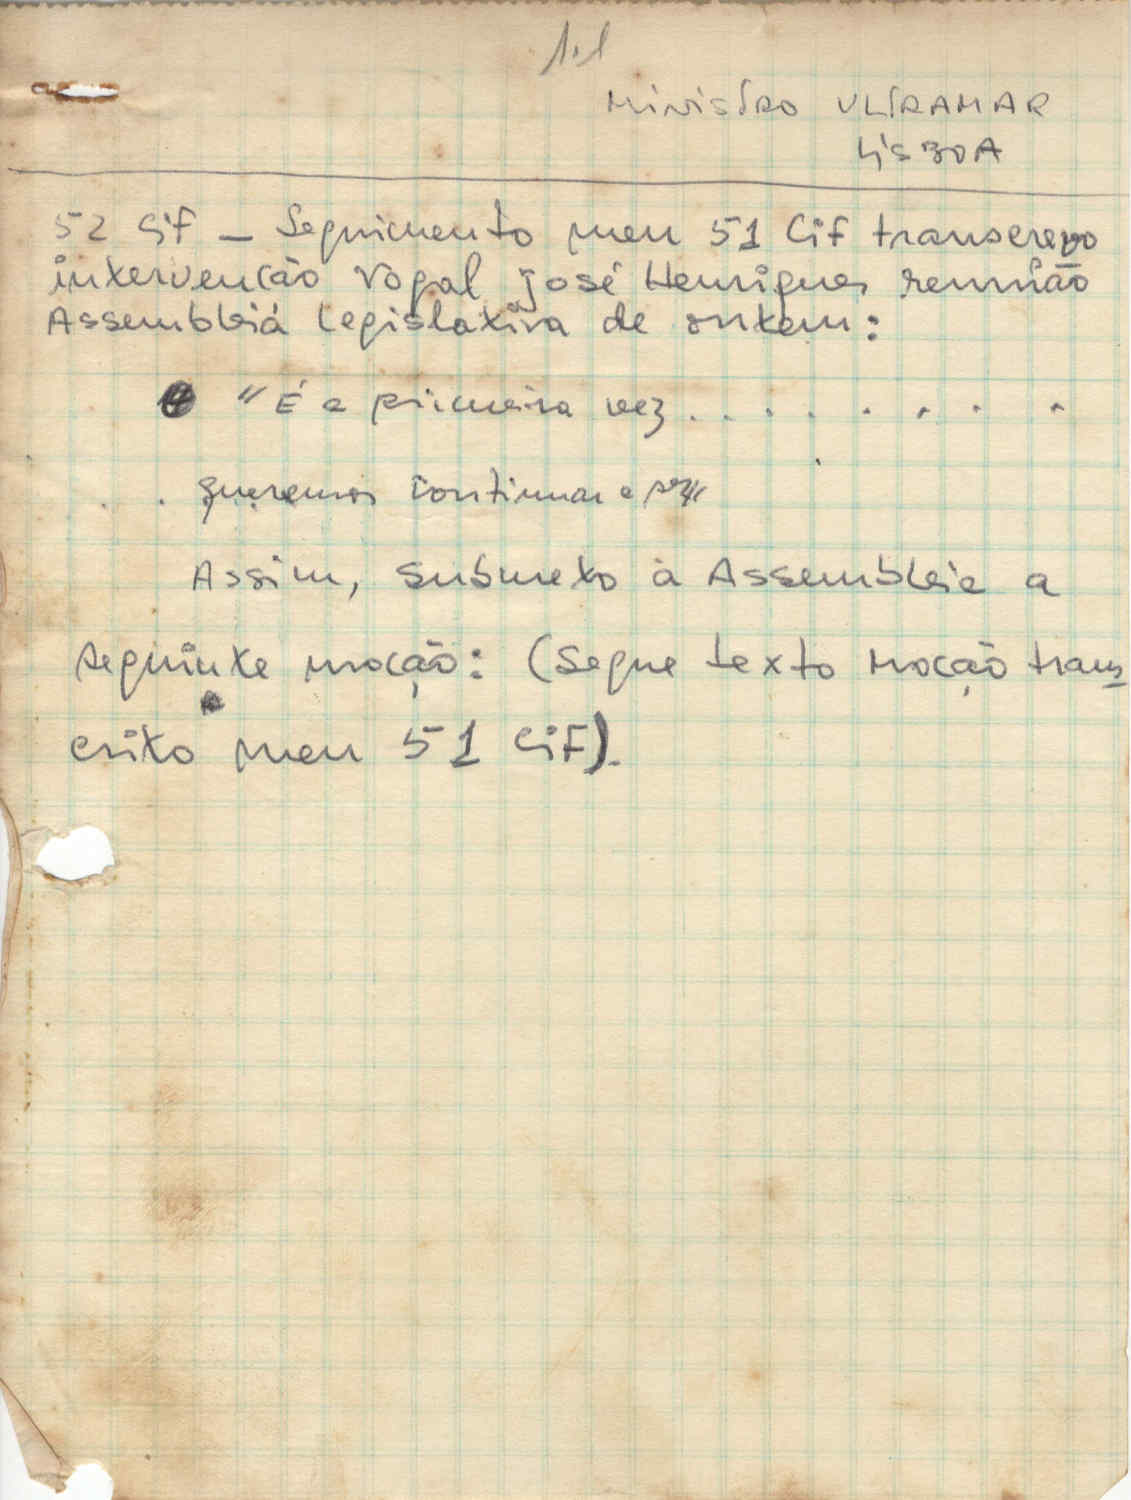 1.1
MINISTRO ULTRAMAR
LISBOA
52 Cif — Seguimento meu 51 Cif transcrevo
intervenção Vogal José Henriques reunião
Assembleiá Legislativa de ontem:
"É a primeira vez . . . . . . . .
. . queremos continuar a ser"
Assim, submeto à Assembleia a
seguinte moção: (Segue texto moção trans_
crito meu 51 Cif).